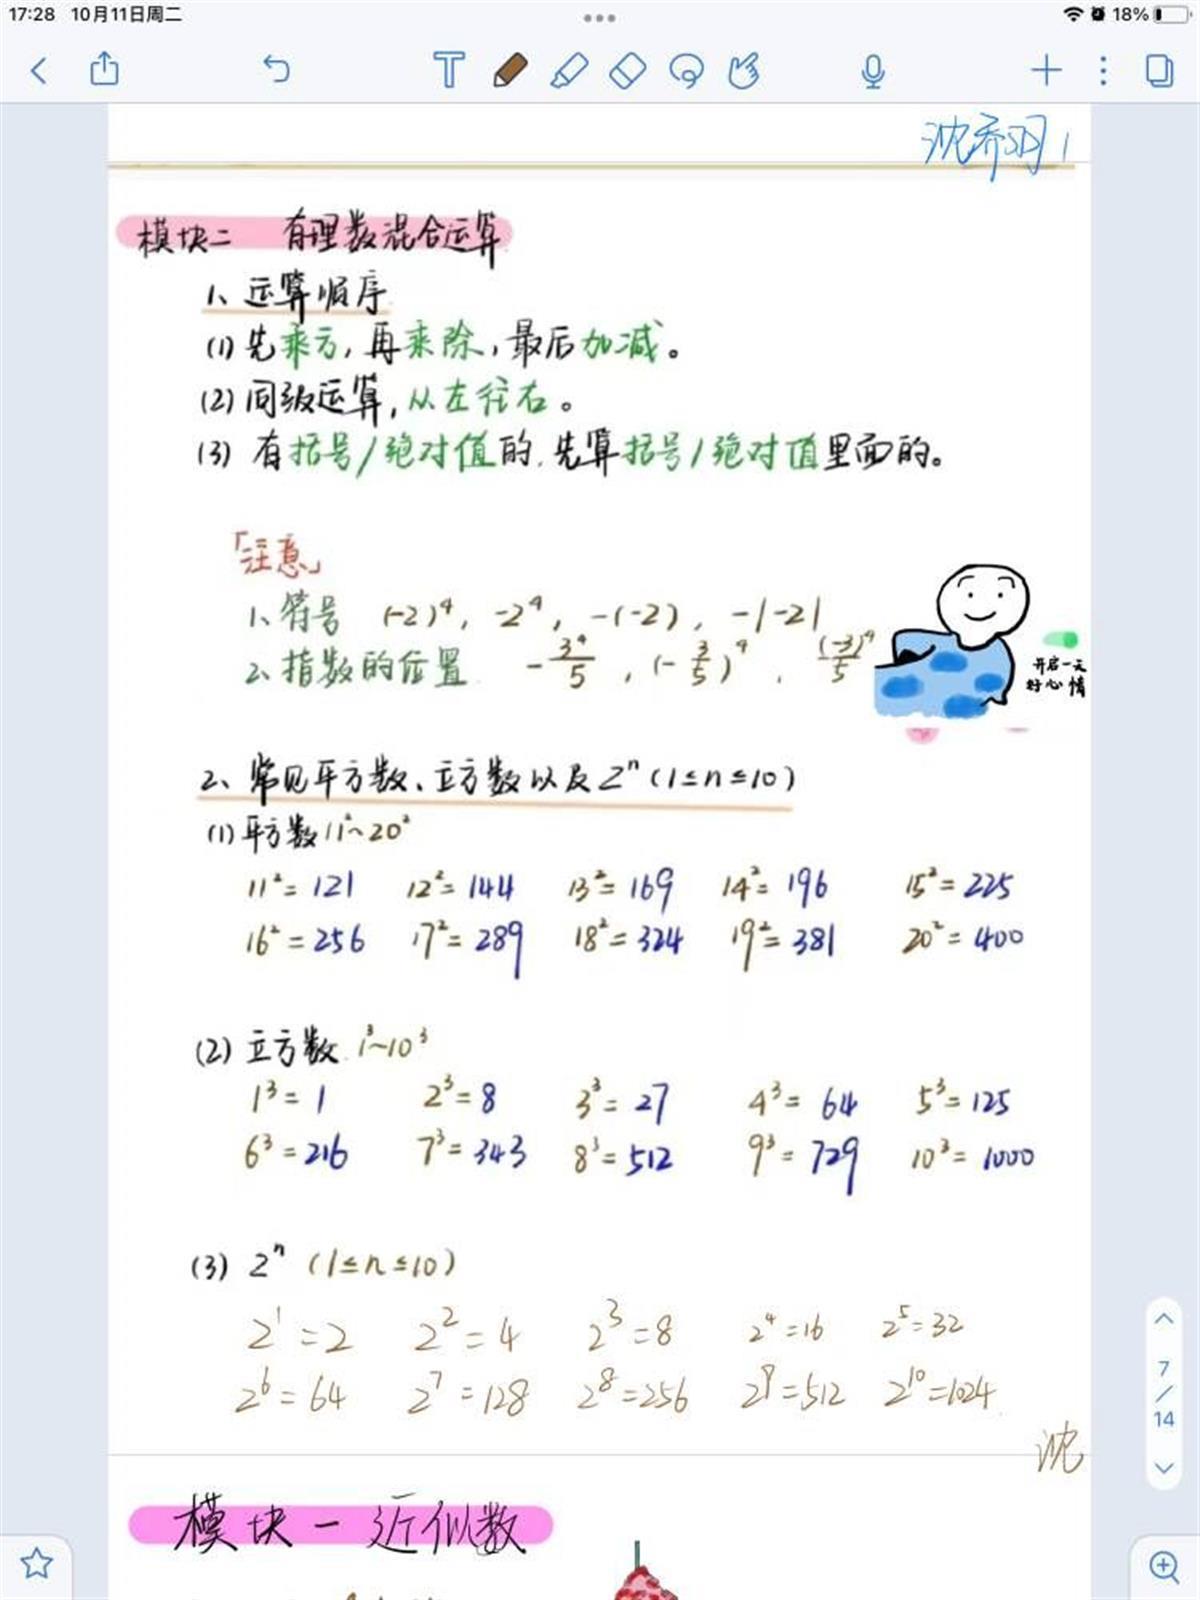 17:28 10月11日周二
18%
T
沈乔羽1
模块二 有理数混合运算
1、运算顺序
(1) 先乘方,再乘除,最后加减。
(2) 同级运算,从左往右。
(3) 有括号/绝对值的,先算括号/绝对值里面的。
「注意」
1、符号 (-2)⁴, -2⁴, -(-2), -|-2|
2、指数的位置 -3⁴/5, (-3/5)⁴, (-3)⁴/5
开启一天
好心情
2、常见平方数、立方数以及2ⁿ(1≤n≤10)
(1) 平方数11²~20²
11²=121 12²=144 13²=169 14²=196 15²=225
16²=256 17²=289 18²=324 19²=381 20²=400
(2) 立方数 1³~10³
1³=1 2³=8 3³=27 4³=64 5³=125
6³=216 7³=343 8³=512 9³=729 10³=1000
(3) 2ⁿ (1≤n≤10)
2¹=2 2²=4 2³=8 2⁴=16 2⁵=32
2⁶=64 2⁷=128 2⁸=256 2⁹=512 2¹⁰=1024
7/14
沈
模块一 近似数